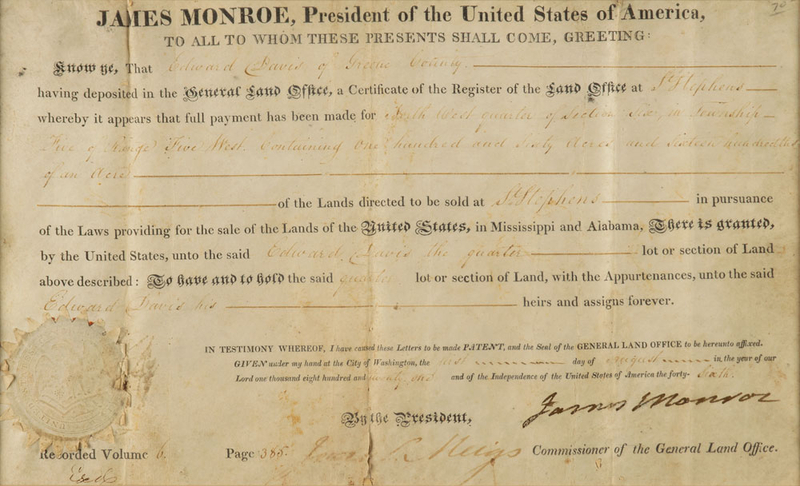 JAMES MONROE, President of the United States of America,
TO ALL TO WHOM THESE PRESENTS SHALL COME, GREETING:
Know ye, That Edward Davis of Greene County.
having deposited in the General Land Office, a Certificate of the Register of the Land Office at St Stephens
whereby it appears that full payment has been made for North West quarter of Section Six, in Township
Five of Range Five West. Containing One hundred and Sixty Acres and Sixteen hundredths
of an Acre
of the Lands directed to be sold at St Stephens in pursuance
of the Laws providing for the sale of the Lands of the United States, in Mississippi and Alabama, There is granted,
by the United States, unto the said Edward Davis the quarter lot or section of Land
above described: To have and to hold the said quarter lot or section of Land, with the Appurtenances, unto the said
Edward Davis his heirs and assigns forever.
IN TESTIMONY WHEREOF, I have caused these Letters to be made PATENT, and the Seal of the GENERAL LAND OFFICE to be hereunto affixed.
GIVEN under my hand at the City of Washington, the first day of August in the year of our
Lord one thousand eight hundred and twenty one and of the Independence of the United States of America the forty- Sixth.
By the President, James Monroe
Recorded Volume 6. Page 385. Meigs Commissioner of the General Land Office.